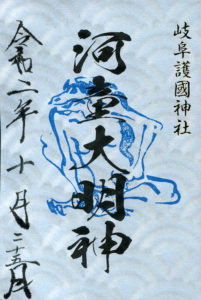 岐阜護國神社
河童大明神
令和二年十月二十五日